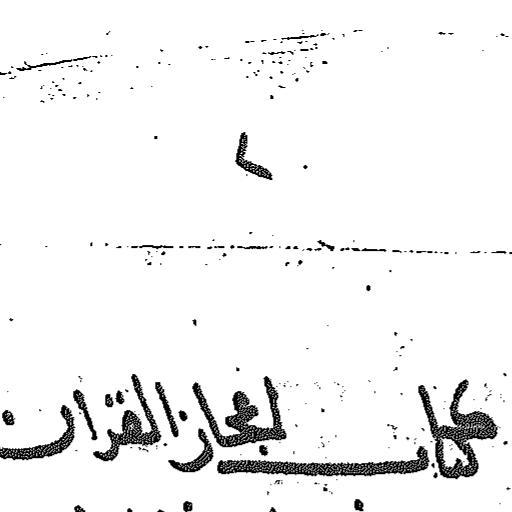 كتاب مجاز القران